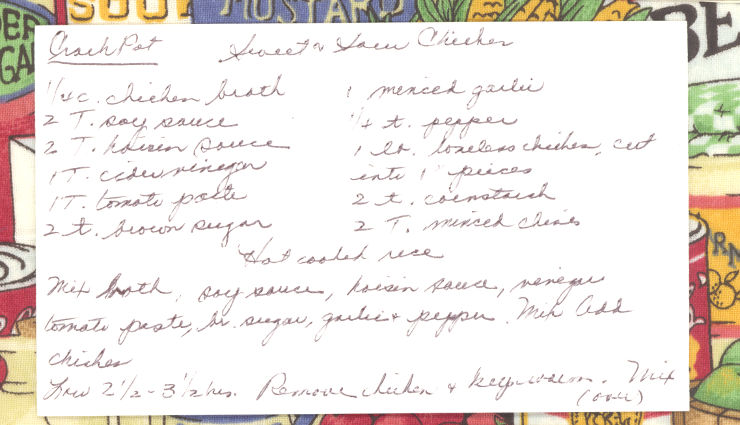 SOUP
MUSTARD
Crock Pot Sweet & Sour Chicken
1/4 c. chicken broth
2 T. soy sauce
2 T. hoisin sauce
1 T. cider vinegar
1 T. tomato paste
2 t. brown sugar
1 minced garlic
1/4 t. pepper
1 lb. boneless chicken, cut
into 1" pieces
2 t. cornstarch
2 T. minced chives
Hot cooked rice
Mix broth, soy sauce, hoisin sauce, vinegar
tomato paste, br. sugar, garlic & pepper. Mix Add
chicken
Low 2 1/2 - 3 1/2 hrs. Remove chicken & keep warm. Mix
(over)